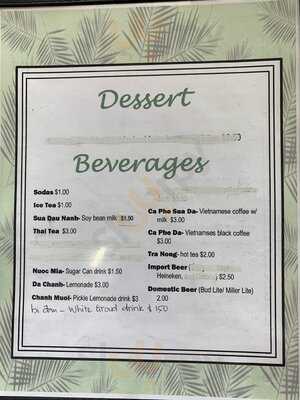 Dessert
Beverages
Sodas $1.00
Ice Tea $1.00
Sua Dau Nanh- Soy bean milk $1.50
Thai Tea $3.00
Nuoc Mia- Sugar Can drink $1.50
Da Chanh- Lemonade $3.00
Chanh Muoi- Pickle Lemonade drink $3
bi đao - White Groud drink $ 150
Ca Phe Sua Da- Vietnamese coffee w/
milk $3.00
Ca Phe Da- Vietnamses black coffee
$3.00
Tra Nong- hot tea $2.00
Import Beer (
Heineken, $2.50
Domestic Beer (Bud Lite/ Miller Lite)
2.00